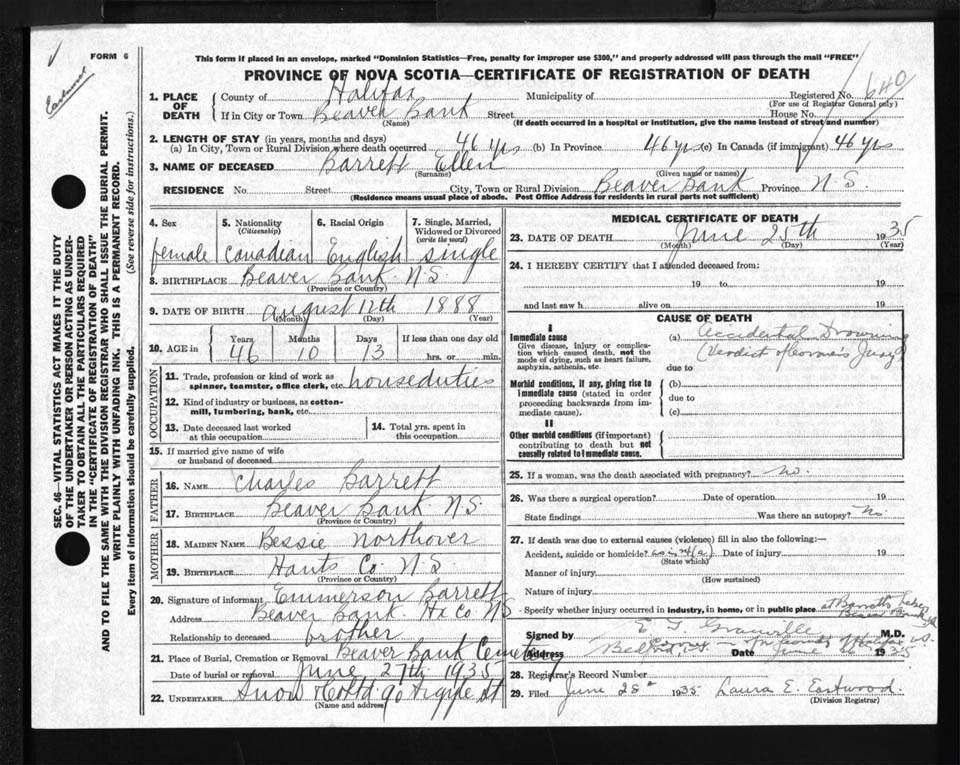 FORM 6
Eastwood
This form if placed in an envelope, marked "Dominion Statistics—Free, penalty for improper use $300," and properly addressed will pass through the mail "FREE"
PROVINCE OF NOVA SCOTIA—CERTIFICATE OF REGISTRATION OF DEATH
640
1. PLACE OF DEATH County of Halifax Municipality of Registered No.
(For use of Registrar General only)
If in City or Town Beaver Bank Street House No.
(Name) (If death occurred in a hospital or institution, give the name instead of street and number)
2. LENGTH OF STAY (in years, months and days)
(a) In City, Town or Rural Division where death occurred 46 yrs (b) In Province 46 yrs (c) In Canada (if immigrant) 46 yrs
3. NAME OF DECEASED Barrett Ellen
(Surname) (Given name or names)
RESIDENCE No. Street City, Town or Rural Division Beaver Bank Province N.S.
(Residence means usual place of abode. Post Office Address for residents in rural parts not sufficient)
4. Sex female
5. Nationality (Citizenship) Canadian
6. Racial Origin English
7. Single, Married, Widowed or Divorced (write the word) single
8. BIRTHPLACE Beaver Bank N.S.
(Province or Country)
9. DATE OF BIRTH August 12th 1888
(Month) (Day) (Year)
10. AGE in Years 46 Months 10 Days 13 If less than one day old hrs. or min.
OCCUPATION
11. Trade, profession or kind of work as spinner, teamster, office clerk, etc. houseduties
12. Kind of industry or business, as cotton-mill, lumbering, bank, etc.
13. Date deceased last worked at this occupation
14. Total yrs. spent in this occupation
15. If married give name of wife or husband of deceased
FATHER
16. NAME Charles Barrett
17. BIRTHPLACE Beaver Bank N.S.
(Province or Country)
MOTHER
18. MAIDEN NAME Bessie Northover
19. BIRTHPLACE Hants Co. N.S.
(Province or Country)
20. Signature of informant Emmerson Barrett
Address Beaver Bank Hx Co. N.S
Relationship to deceased brother
21. Place of Burial, Cremation or Removal Beaver Bank Cemetery
Date of burial or removal June 27th 1935
22. UNDERTAKER Snow & Co Ltd 90 Argyle St
(Name and address)
MEDICAL CERTIFICATE OF DEATH
23. DATE OF DEATH June 25th 1935
(Month) (Day) (Year)
24. I HEREBY CERTIFY that I attended deceased from:
19 to 19
and last saw h alive on 19
CAUSE OF DEATH
I
Immediate cause
Give disease, injury or complication which caused death, not the mode of dying, such as heart failure, asphyxia, asthenia, etc.
(a) Accidental Drowning
(Verdict of Coroner's Jury)
due to
Morbid conditions, if any, giving rise to immediate cause (stated in order proceeding backwards from immediate cause).
(b)
due to
(c)
II
Other morbid conditions (if important) contributing to death but not causally related to immediate cause.
25. If a woman, was the death associated with pregnancy? No.
26. Was there a surgical operation? Date of operation 19
State findings Was there an autopsy? No.
27. If death was due to external causes (violence) fill in also the following:—
Accident, suicide or homicide? as in 24(a) Date of injury 19
(State which)
Manner of injury
(How sustained)
Nature of injury
Specify whether injury occurred in industry, in home, or in public place at Barretts Lake
Beaver Bank
Signed by E T Granville M.D.
Address Bedford N.S. Date June 1935
28. Registrar's Record Number
29. Filed June 28 1935 Laura E. Eastwood.
(Division Registrar)
SEC. 46—VITAL STATISTICS ACT MAKES IT THE DUTY
OF THE UNDERTAKER OR PERSON ACTING AS UNDER-
TAKER TO OBTAIN ALL THE PARTICULARS REQUIRED
IN THE "CERTIFICATE OF REGISTRATION OF DEATH"
AND TO FILE THE SAME WITH THE DIVISION REGISTRAR WHO SHALL ISSUE THE BURIAL PERMIT.
WRITE PLAINLY WITH UNFADING INK. THIS IS A PERMANENT RECORD.
Every item of information should be carefully supplied. (See reverse side for instructions.)